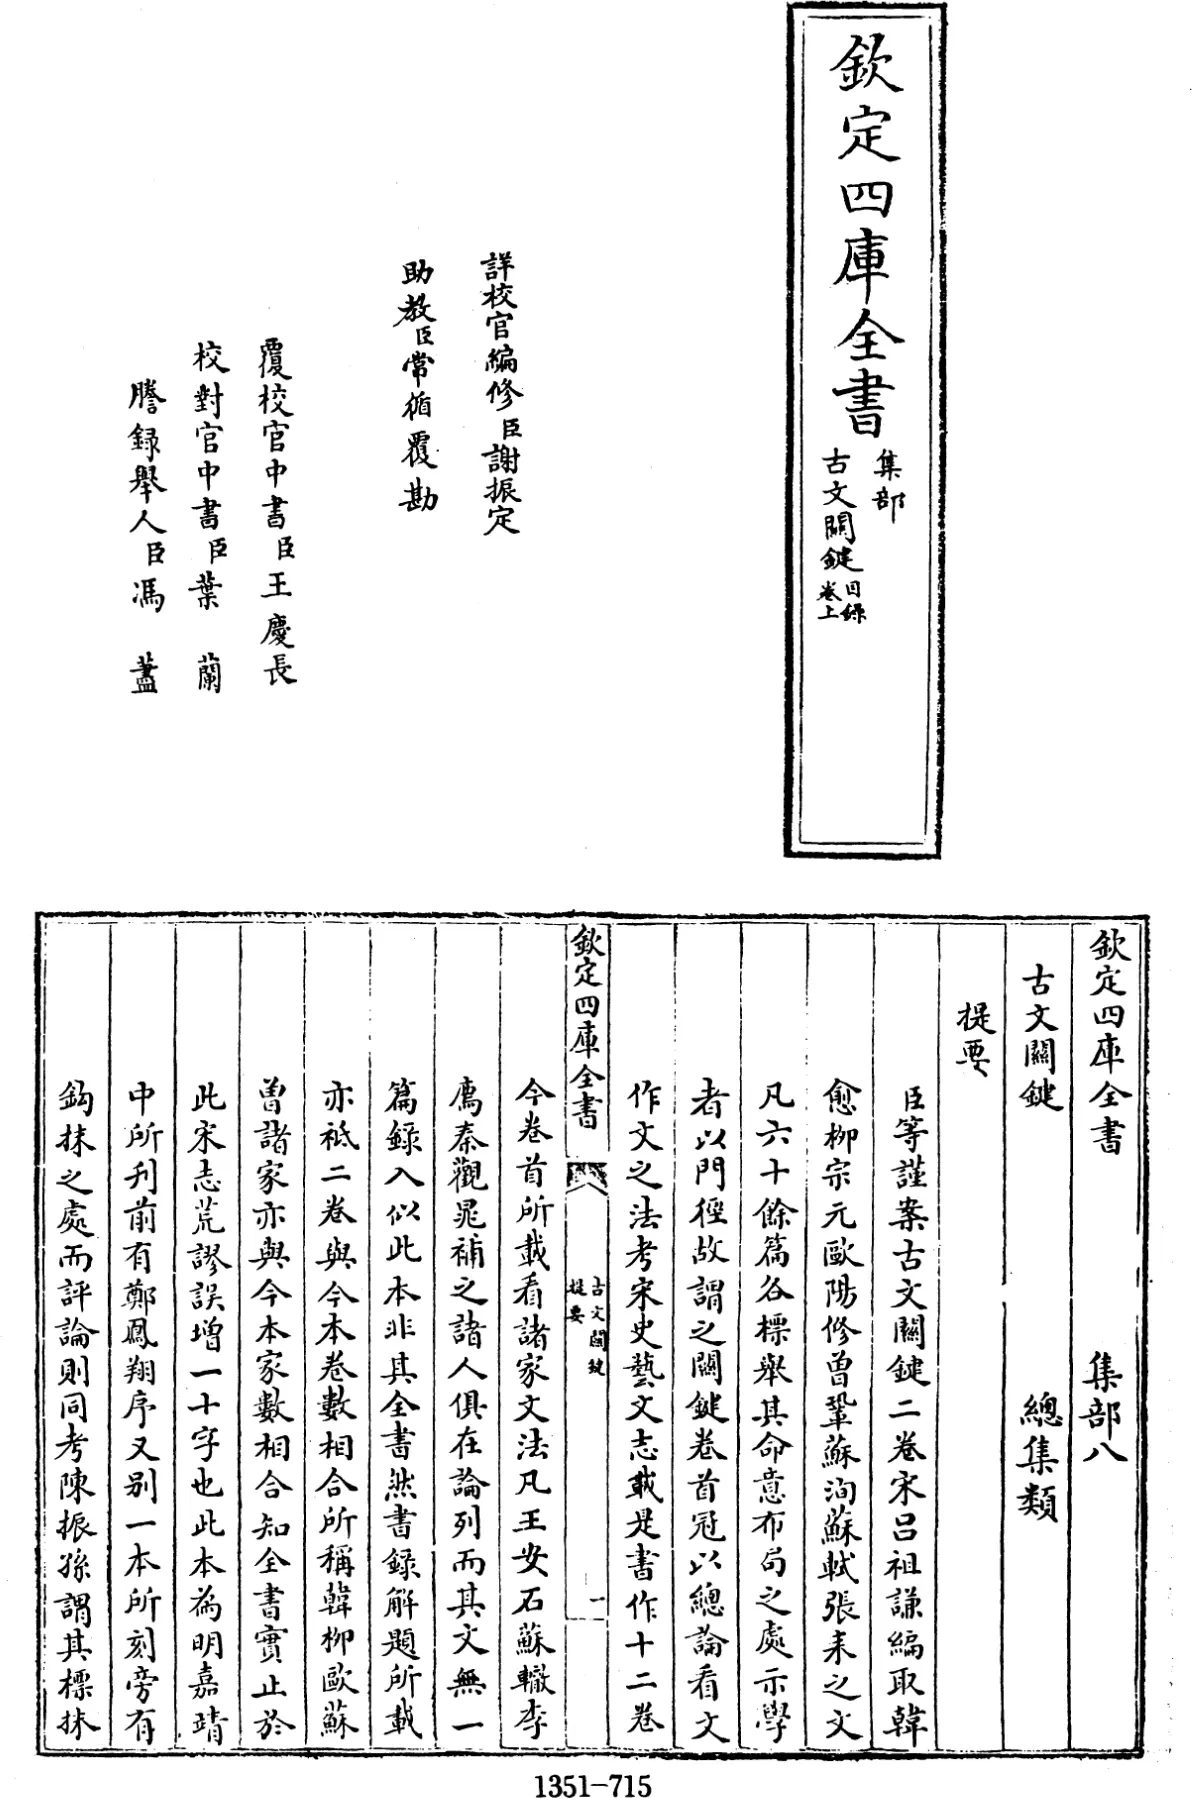 欽定四庫全書
集部
古文關鍵
目録
卷上
詳校官編修臣謝振定
助教臣常循覆勘
覆校官中書臣王慶長
校對官中書臣葉蘭
謄録舉人臣馮藎
欽定四庫全書 集部八
古文關鍵 總集類
提要
臣等謹案古文關鍵二卷宋呂祖謙編取韓
愈柳宗元歐陽修曾鞏蘇洵蘇軾張耒之文
凡六十餘篇各標舉其命意布局之處示學
者以門徑故謂之關鍵卷首冠以總論看文
作文之法考宋史藝文志載是書作十二卷
欽定四庫全書
古文關鍵
提要
一
今卷首所載看諸家文法凡王安石蘇轍李
廌秦觀晁補之諸人俱在論列而其文無一
篇録入似此本非其全書然書録解題所載
亦祗二卷與今本卷數相合所稱韓柳歐蘇
曾諸家亦與今本家數相合知全書實止於
此宋志荒謬誤增一十字也此本為明嘉靖
中所刋前有鄭鳳翔序又别一本所刻旁有
鈎抹之處而評論則同考陳振孫謂其標抹
1351-715